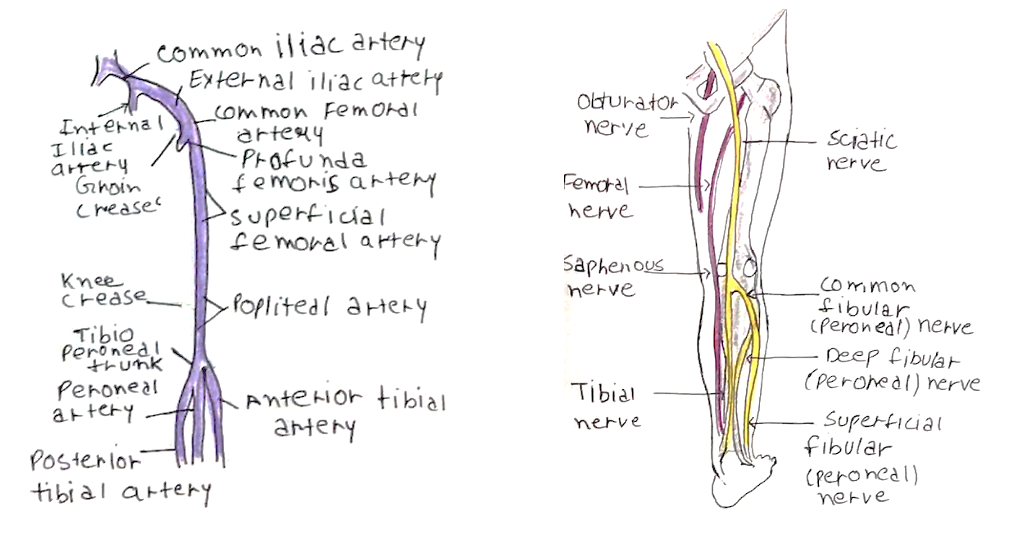 Common iliac artery
External iliac artery
Common Femoral
artery
Internal
Iliac
artery
Profunda
femoris artery
Groin
Crease
Superficial
femoral artery
Knee
Crease
Popliteal artery
Tibio
Peroneal
trunk
Peroneal
artery
Anterior tibial
artery
Posterior
tibial artery
Obturator
nerve
Sciatic
nerve
Femoral
nerve
Saphenous
nerve
Common
fibular
(peroneal) nerve
Deep fibular
(peroneal) nerve
Tibial
nerve
Superficial
fibular
(peroneal)
nerve